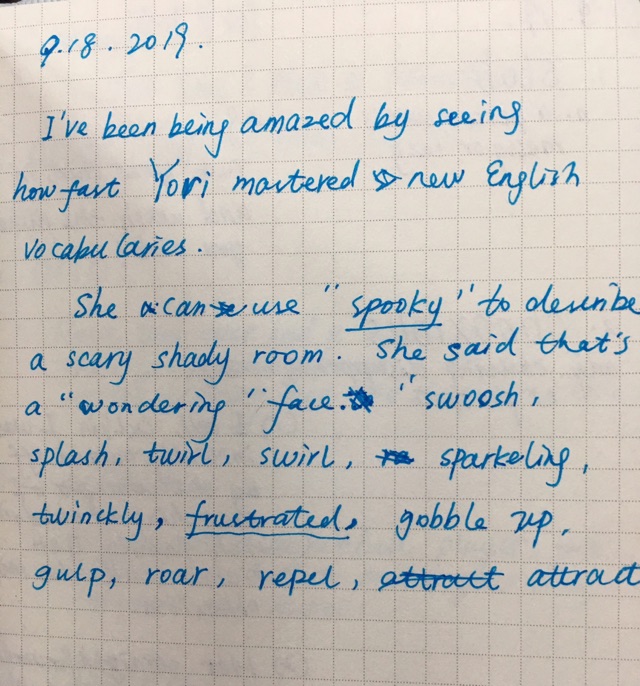 9.18.2019.
I've been being amazed by seeing
how fast Yori mastered new English
vocabularies.
She can use "spooky" to describe
a scary shady room. She said that's
a "wondering" face. "swoosh,
splash, twirl, swirl, sparkeling,
twinckly, frustrated, gobble up,
gulp, roar, repel, attract attract